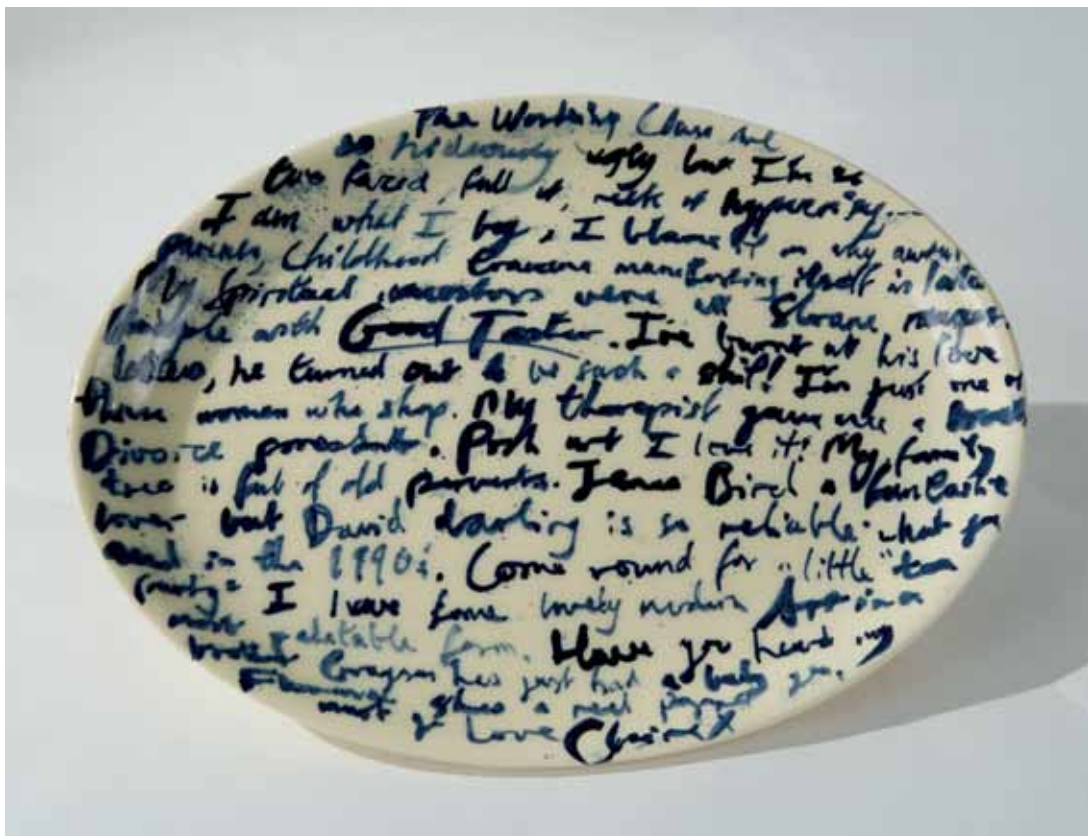 The Working Class are
so hideously ugly but I'm so
two faced, full of, reek of hypocrisy...
I am what I buy, I blame it on my awful
parents, childhood itself is
My Spiritual ancestors were all Sloane rangers.
people with Good Taste. I've burnt all his love
letters, he turned out to be such a shit! I'm just one of
those women who shop. My therapist gave me a
Divorce present. Posh art I love it! My family
tree is full of old perverts. Jesus Bird a fantastic
lover but David darling is so reliable what you
need in the 1990's. Come round for "little" tea
party. I have some lovely modern Art in a
most relatable form. Have you heard my
has just had a baby you,
shes a real
must go Love Claire X